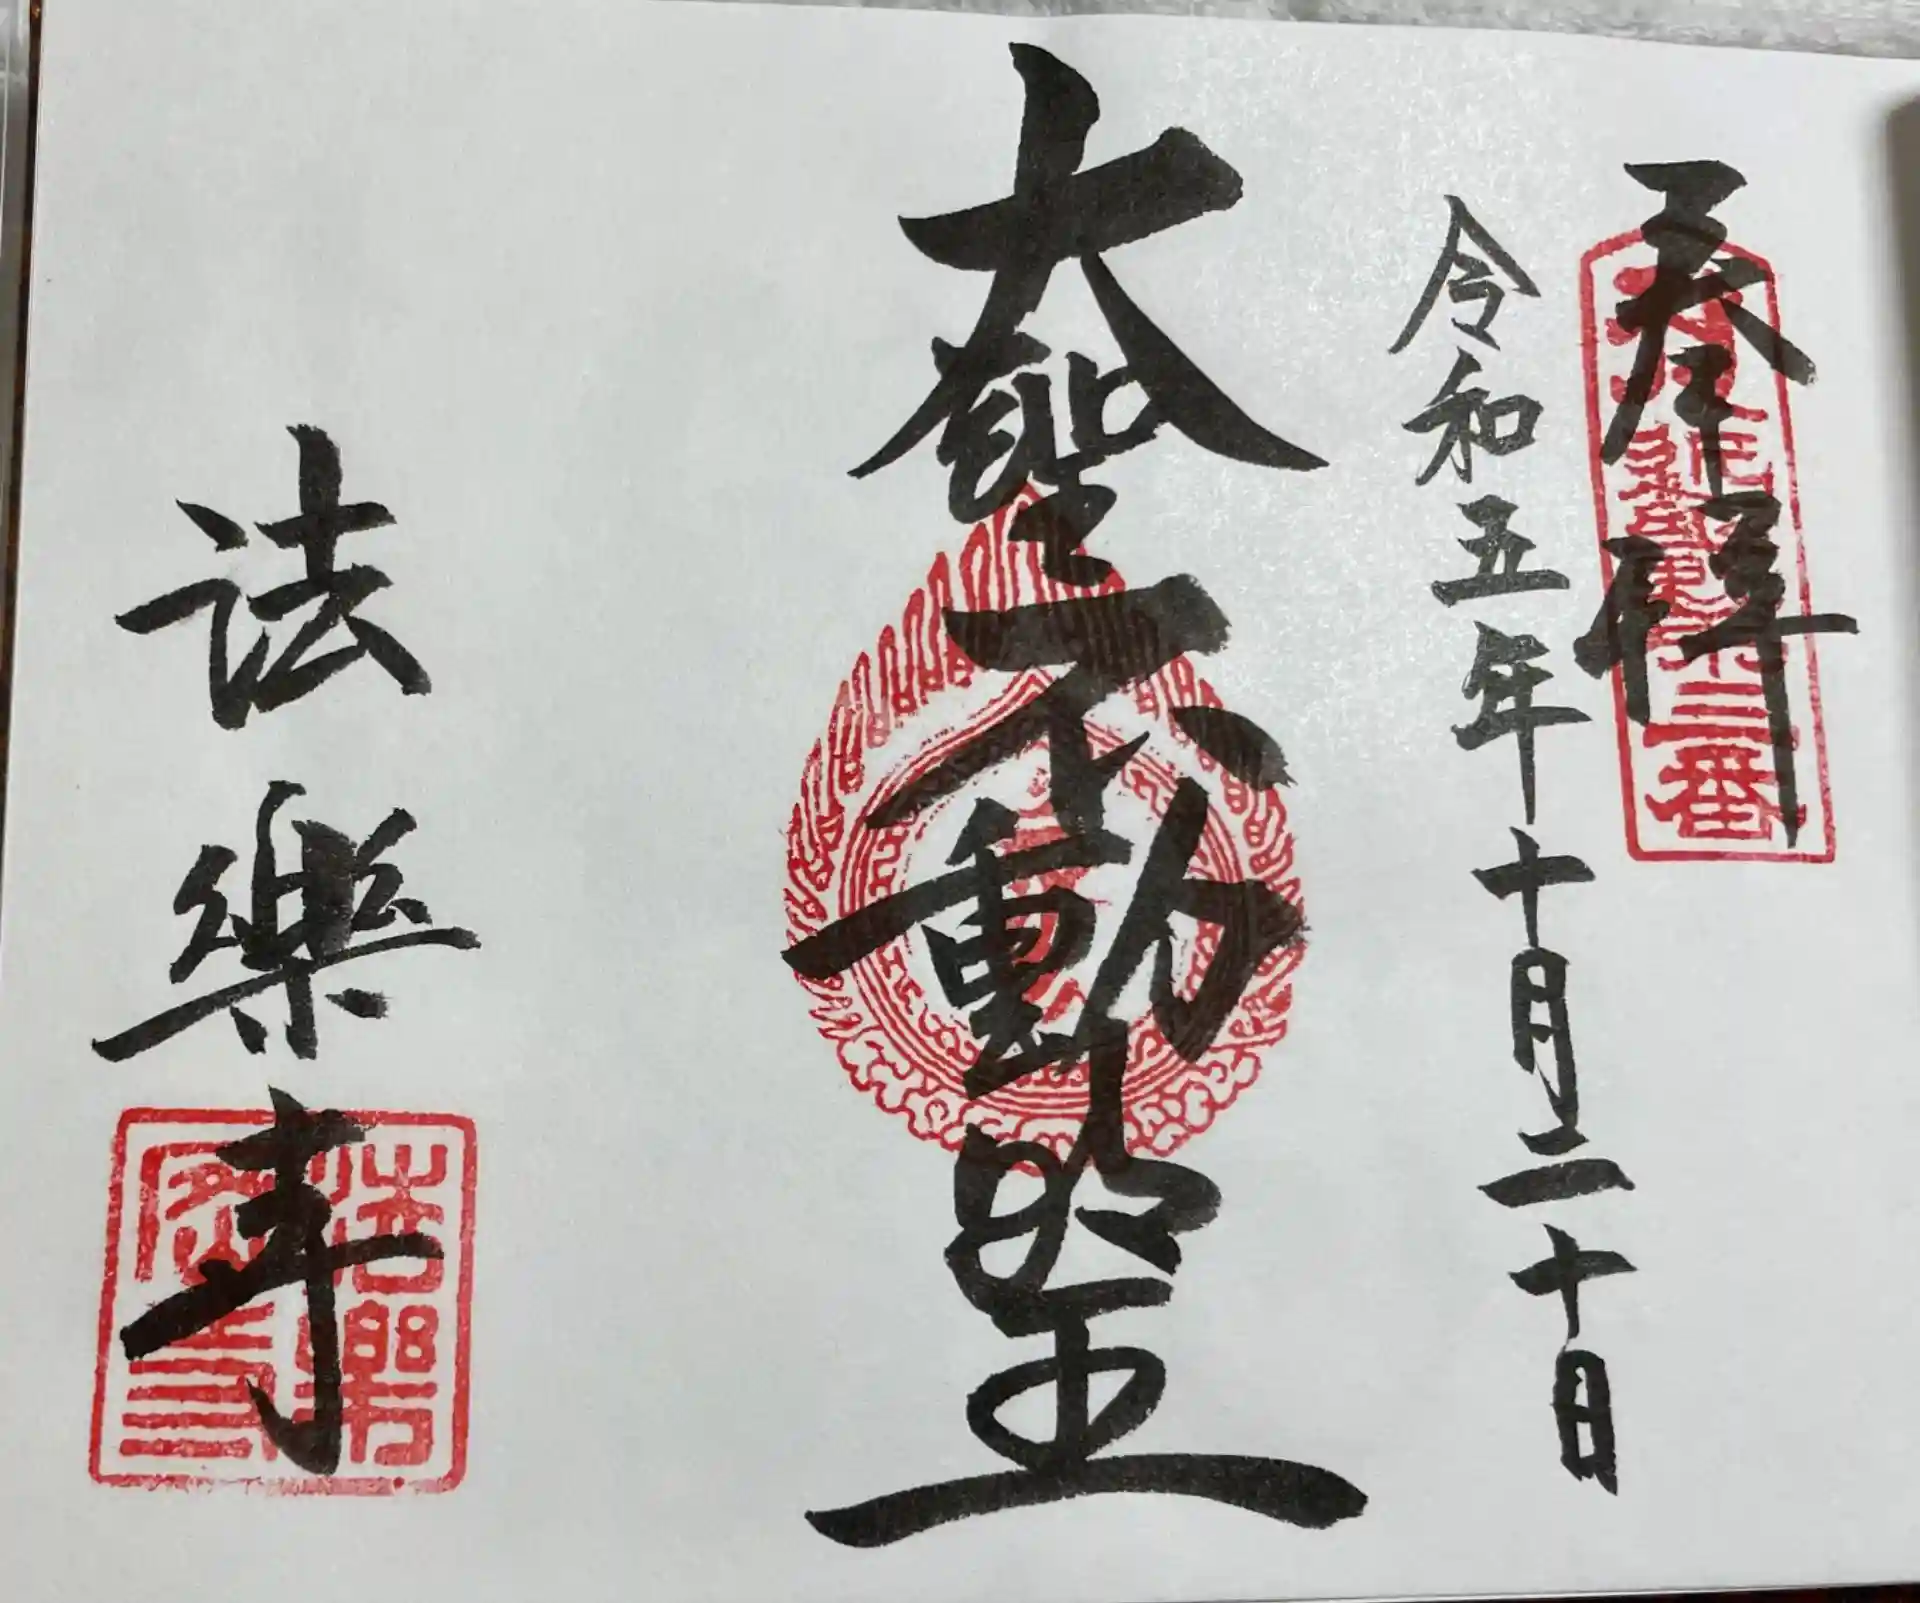 奉拝
令和五年十月二十日
大聖不動明王
法樂寺